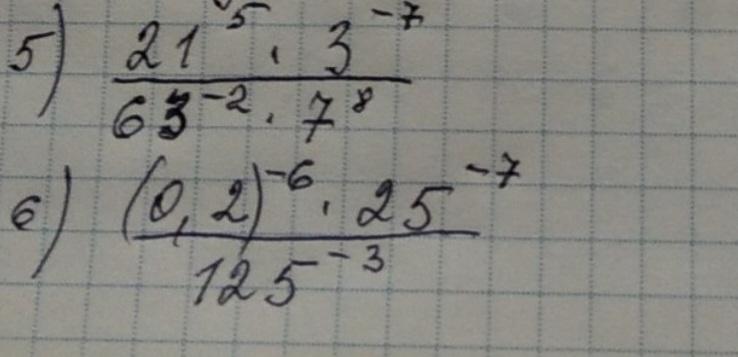 5) \frac{21^5 · 3^{-7}}{63^{-2} · 7^8}
6) \frac{(0,2)^{-6} · 25^{-7}}{125^{-3}}